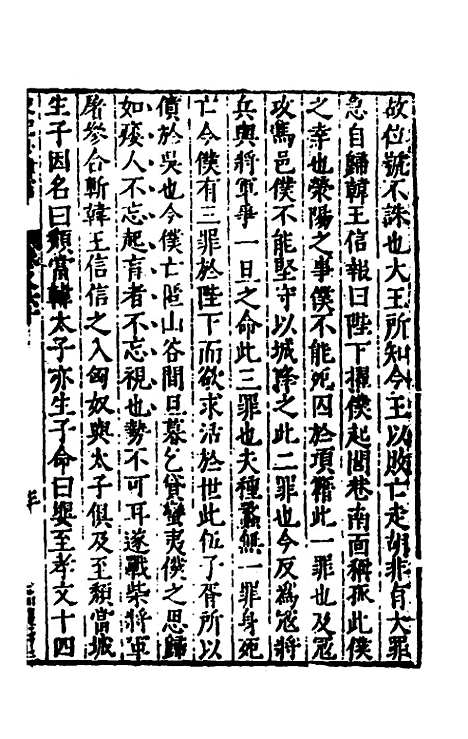 故位號不誅也大王所知今王以敗亡走胡非有大罪
急自歸韓王信報曰陛下擢僕起閭巷南面稱孤此僕
之幸也滎陽之事僕不能死囚於項籍此一罪也及寇
攻馬邑僕不能堅守以城降之此二罪也今反為寇將
兵與將軍爭一旦之命此三罪也夫種蠡無一罪身死
亡今僕有三罪於陛下而欲求活於世此伍子胥所以
僨於吳也今僕亡匿山谷間旦暮乞貸蠻夷僕之思歸
如痿人不忘起盲者不忘視也勢不可耳遂戰柴將軍
屠參合斬韓王信信之入匈奴與太子俱及至頹當城
生子因名曰頹當韓太子亦生子命曰嬰至孝文十四